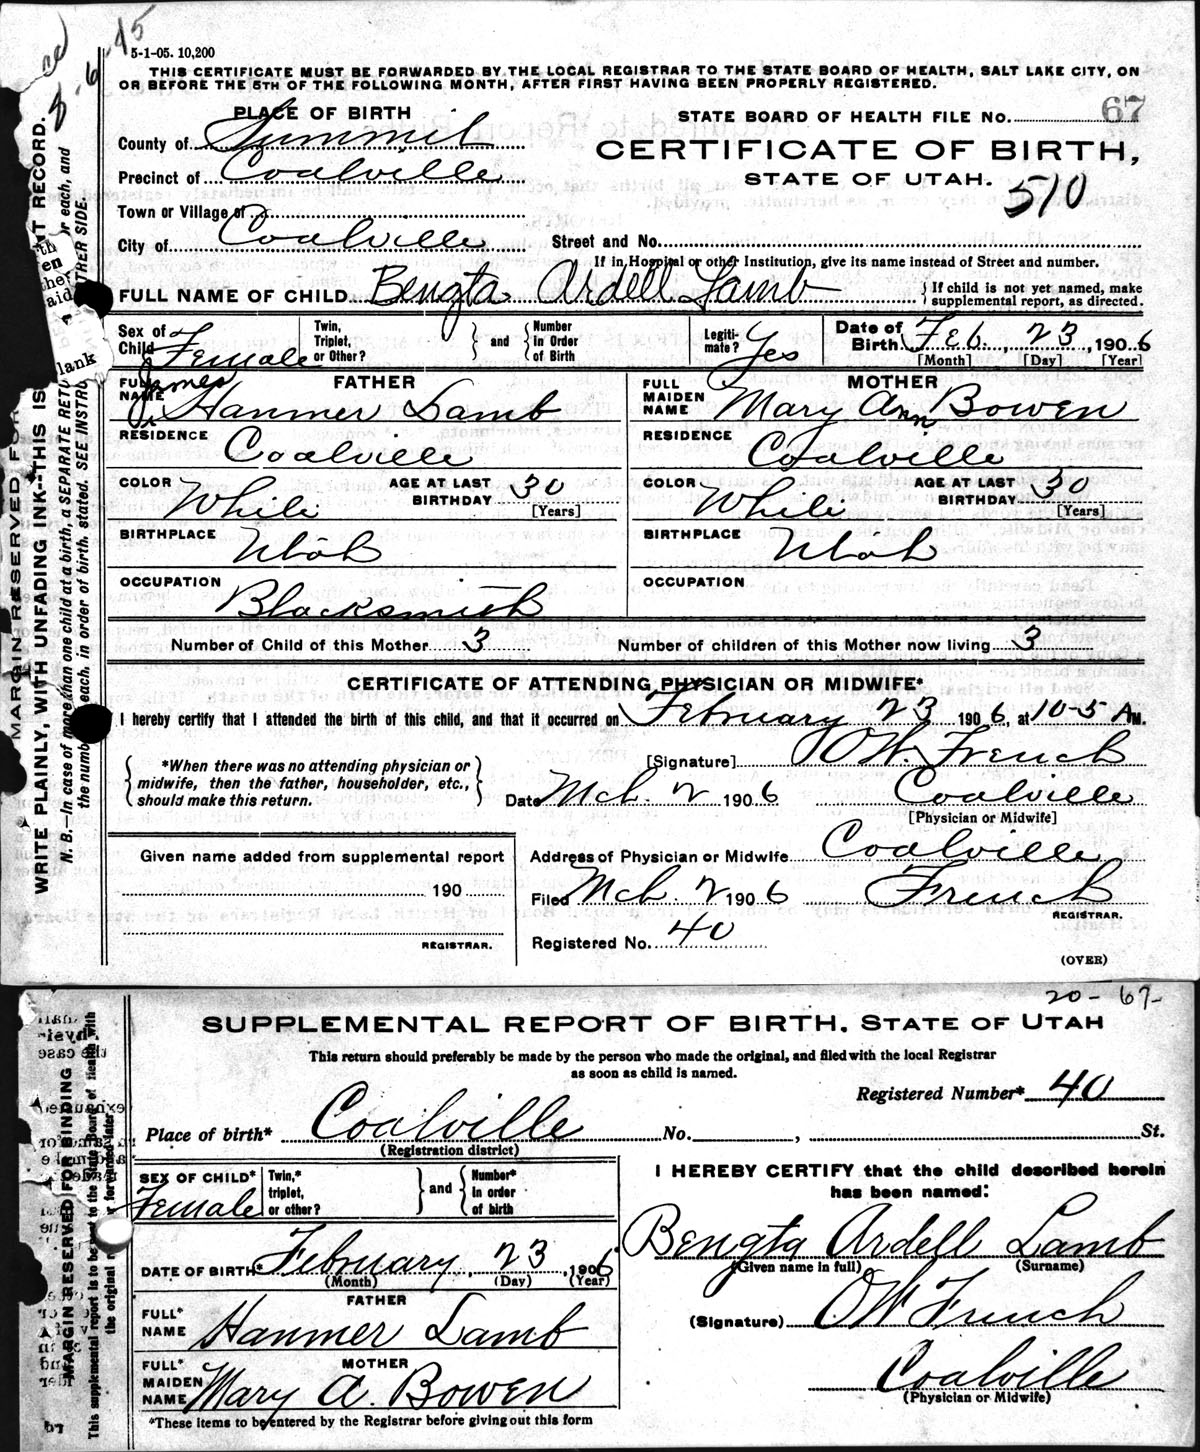 5-1-05. 10,200
THIS CERTIFICATE MUST BE FORWARDED BY THE LOCAL REGISTRAR TO THE STATE BOARD OF HEALTH, SALT LAKE CITY, ON
OR BEFORE THE 5TH OF THE FOLLOWING MONTH, AFTER FIRST HAVING BEEN PROPERLY REGISTERED.
PLACE OF BIRTH
STATE BOARD OF HEALTH FILE NO. 67
County of Summit
CERTIFICATE OF BIRTH,
Precinct of Coalville
STATE OF UTAH. 510
Town or Village of
City of Coalville Street and No.
If in Hospital or other Institution, give its name instead of Street and number.
FULL NAME OF CHILD Bengta Ardell Lamb { If child is not yet named, make supplemental report, as directed.
Sex of Child Female Twin, Triplet, or Other? } and { Number in Order of Birth Legiti-mate? Yes Date of Birth Feb. 23, 1906
[Month] [Day] [Year]
FATHER MOTHER
FULL NAME James Hanmer Lamb FULL MAIDEN NAME Mary Ann Bowen
RESIDENCE Coalville RESIDENCE Coalville
COLOR White AGE AT LAST BIRTHDAY 30 [Years] COLOR White AGE AT LAST BIRTHDAY 30 [Years]
BIRTHPLACE Utah BIRTHPLACE Utah
OCCUPATION Blacksmith OCCUPATION
Number of Child of this Mother 3 Number of children of this Mother now living 3
CERTIFICATE OF ATTENDING PHYSICIAN OR MIDWIFE*
I hereby certify that I attended the birth of this child, and that it occurred on February 23 1906, at 10-5 A M.
{ *When there was no attending physician or midwife, then the father, householder, etc., should make this return. }
[Signature] OW. French
Date Mch. 2 1906 Coalville
[Physician or Midwife]
Given name added from supplemental report
190
REGISTRAR.
Address of Physician or Midwife Coalville
Filed Mch. 2 1906 French
REGISTRAR.
Registered No. 40
(OVER)
MARGIN RESERVED FOR
WRITE PLAINLY, WITH UNFADING INK--THIS IS
NT RECORD.
N. B.—In case of more than one child at a birth, a SEPARATE RETU
r each, and
the numb
each, in order of birth, stated. SEE INSTRU
THER SIDE.
20- 67-
SUPPLEMENTAL REPORT OF BIRTH. STATE OF UTAH
This return should preferably be made by the person who made the original, and filed with the local Registrar
as soon as child is named.
Registered Number* 40
Place of birth* Coalville No. , St.
(Registration district)
SEX OF CHILD* Female Twin,* triplet, or other? } and { Number* in order of birth
I HEREBY CERTIFY that the child described herein
has been named:
Bengta Ardell Lamb
(Given name in full) (Surname)
DATE OF BIRTH* February 23, 1906
(Month) (Day) (Year)
FATHER
FULL* NAME Hanmer Lamb
(Signature) OW French
MOTHER
FULL* MAIDEN NAME Mary A. Bowen
Coalville
(Physician or Midwife)
*These items to be entered by the Registrar before giving out this form
MARGIN RESERVED FOR BINDING
This supplemental report is to be sent to the State Board of Health with
the original